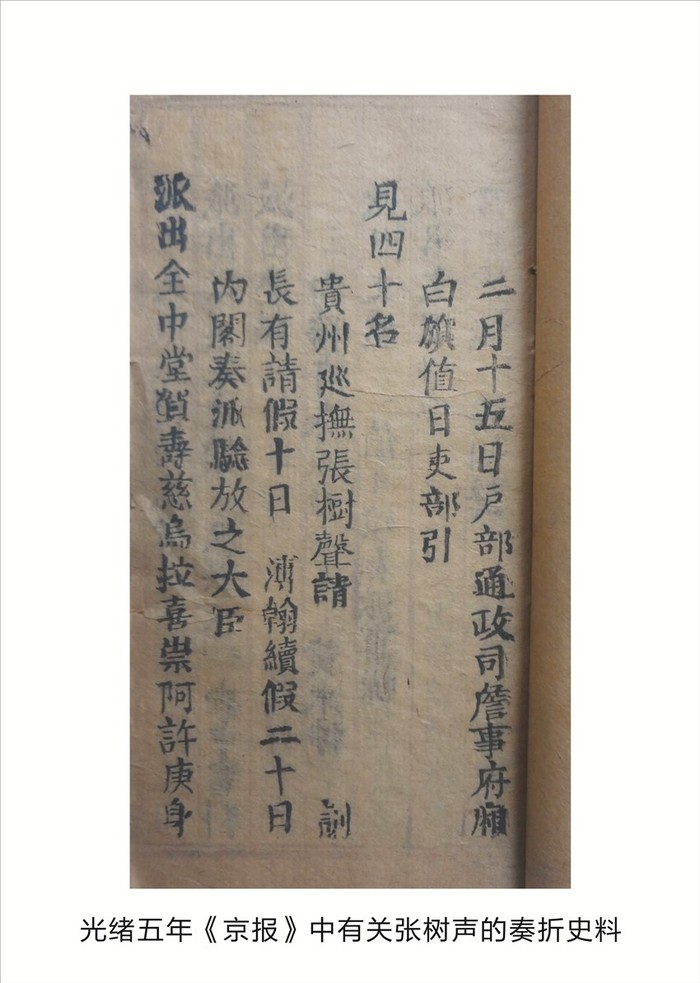 二月十五日戶部通政司詹事府廂
白旗值日吏部引
見四十名
貴州廵撫張樹聲請 訓
長有請假十日 溥翰續假二十日
內閣奏派驗放之大臣
派出全中堂賀壽慈烏拉喜崇阿許庚身
光绪五年《京报》中有关张树声的奏折史料